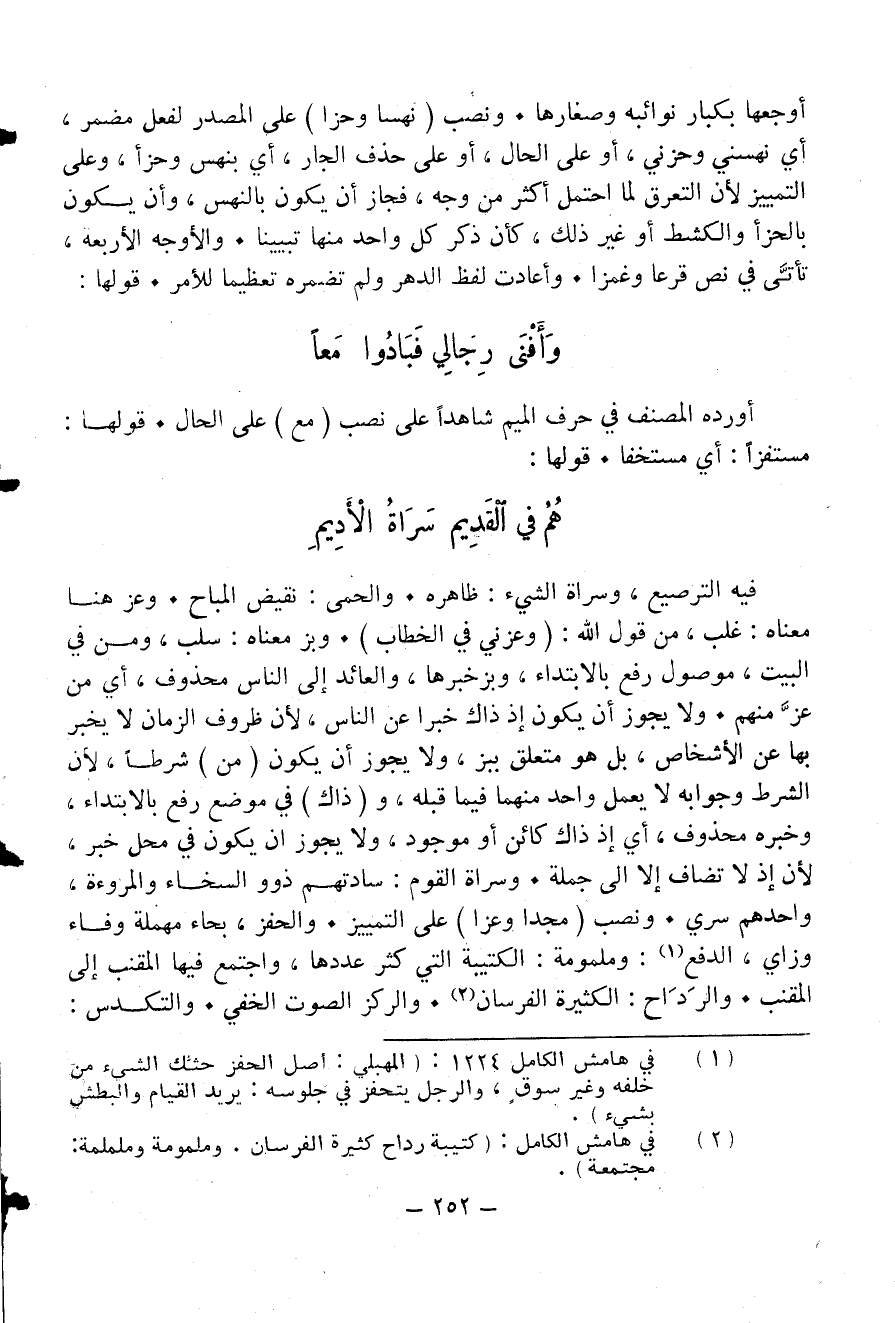 أوجعها بكبار نوائبه وصغارها • ونصب ( نهسا وحزا ) على المصدر لفعل مضمر ،
أي نهسني وحزني ، أو على الحال ، أو على حذف الجار ، أي بنهس وحزأ ، وعلى
التمييز لأن التعرق لما احتمل أكثر من وجه ، فجاز أن يكون بالنهس ، وأن يــكون
بالحزأ والكشط أو غير ذلك ، كأن ذكر كل واحد منها تبيينا • والأوجه الأربعة ،
تأتَّى في نص قرعا وغمزا • وأعادت لفظ الدهر ولم تضمره تعظيما للأمر • قولها :
وَأَفْنَى رِجَالِي فَبَادُوا مَعاً
أورده المصنف في حرف الميم شاهداً على نصب ( مع ) على الحال • قولهــا :
مستفزاً : أي مستخفا • قولها :
هُمُ في القَدِيمِ سَرَاةُ الأَدِيمِ
فيه الترصيع ، وسراة الشيء : ظاهره • والحمى : نقيض المباح • وعز هنــا
معناه : غلب ، من قول الله : ( وعزني في الخطاب ) • وبز معناه : سلب ، ومــن في
البيت ، موصول رفع بالابتداء ، وبزخبرها ، والعائد إلى الناس محذوف ، أي من
عزَّ منهم • ولا يجوز أن يكون إذ ذاك خبرا عن الناس ، لأن ظروف الزمان لا يخبر
بها عن الأشخاص ، بل هو متعلق ببز ، ولا يجوز أن يكون ( من ) شرطــاً ، لأن
الشرط وجوابه لا يعمل واحد منهما فيما قبله ، و ( ذاك ) في موضع رفع بالابتداء ،
وخبره محذوف ، أي إذ ذاك كائن أو موجود ، ولا يجوز ان يكون في محل خبر ،
لأن إذ لا تضاف إلا الى جملة • وسراة القوم : سادتهــم ذوو السخــاء والمروءة ،
واحدهم سري • ونصب ( مجدا وعزا ) على التمييز • والحفز ، بحاء مهملة وفــاء
وزاي ، الدفع(١) : وملمومة : الكتيبة التي كثر عددها ، واجتمع فيها المقنب إلى
المقنب • والرَدَاح : الكثيرة الفرسان(٢) • والركز الصوت الخفي • والتكــدس :
( ١ ) في هامش الكامل ١٢٢٤ : ( المهبلي : أصل الحفز حثك الشيء من
خلفه وغير سوقٍ ، والرجل يتحفز في جلوسه : يريد القيام والبطش
بشيء ) .
( ٢ ) في هامش الكامل : ( كتيبة رداح كثيرة الفرسان . وملمومة وململمة:
مجتمعة ) .
– ٢٥٢ –